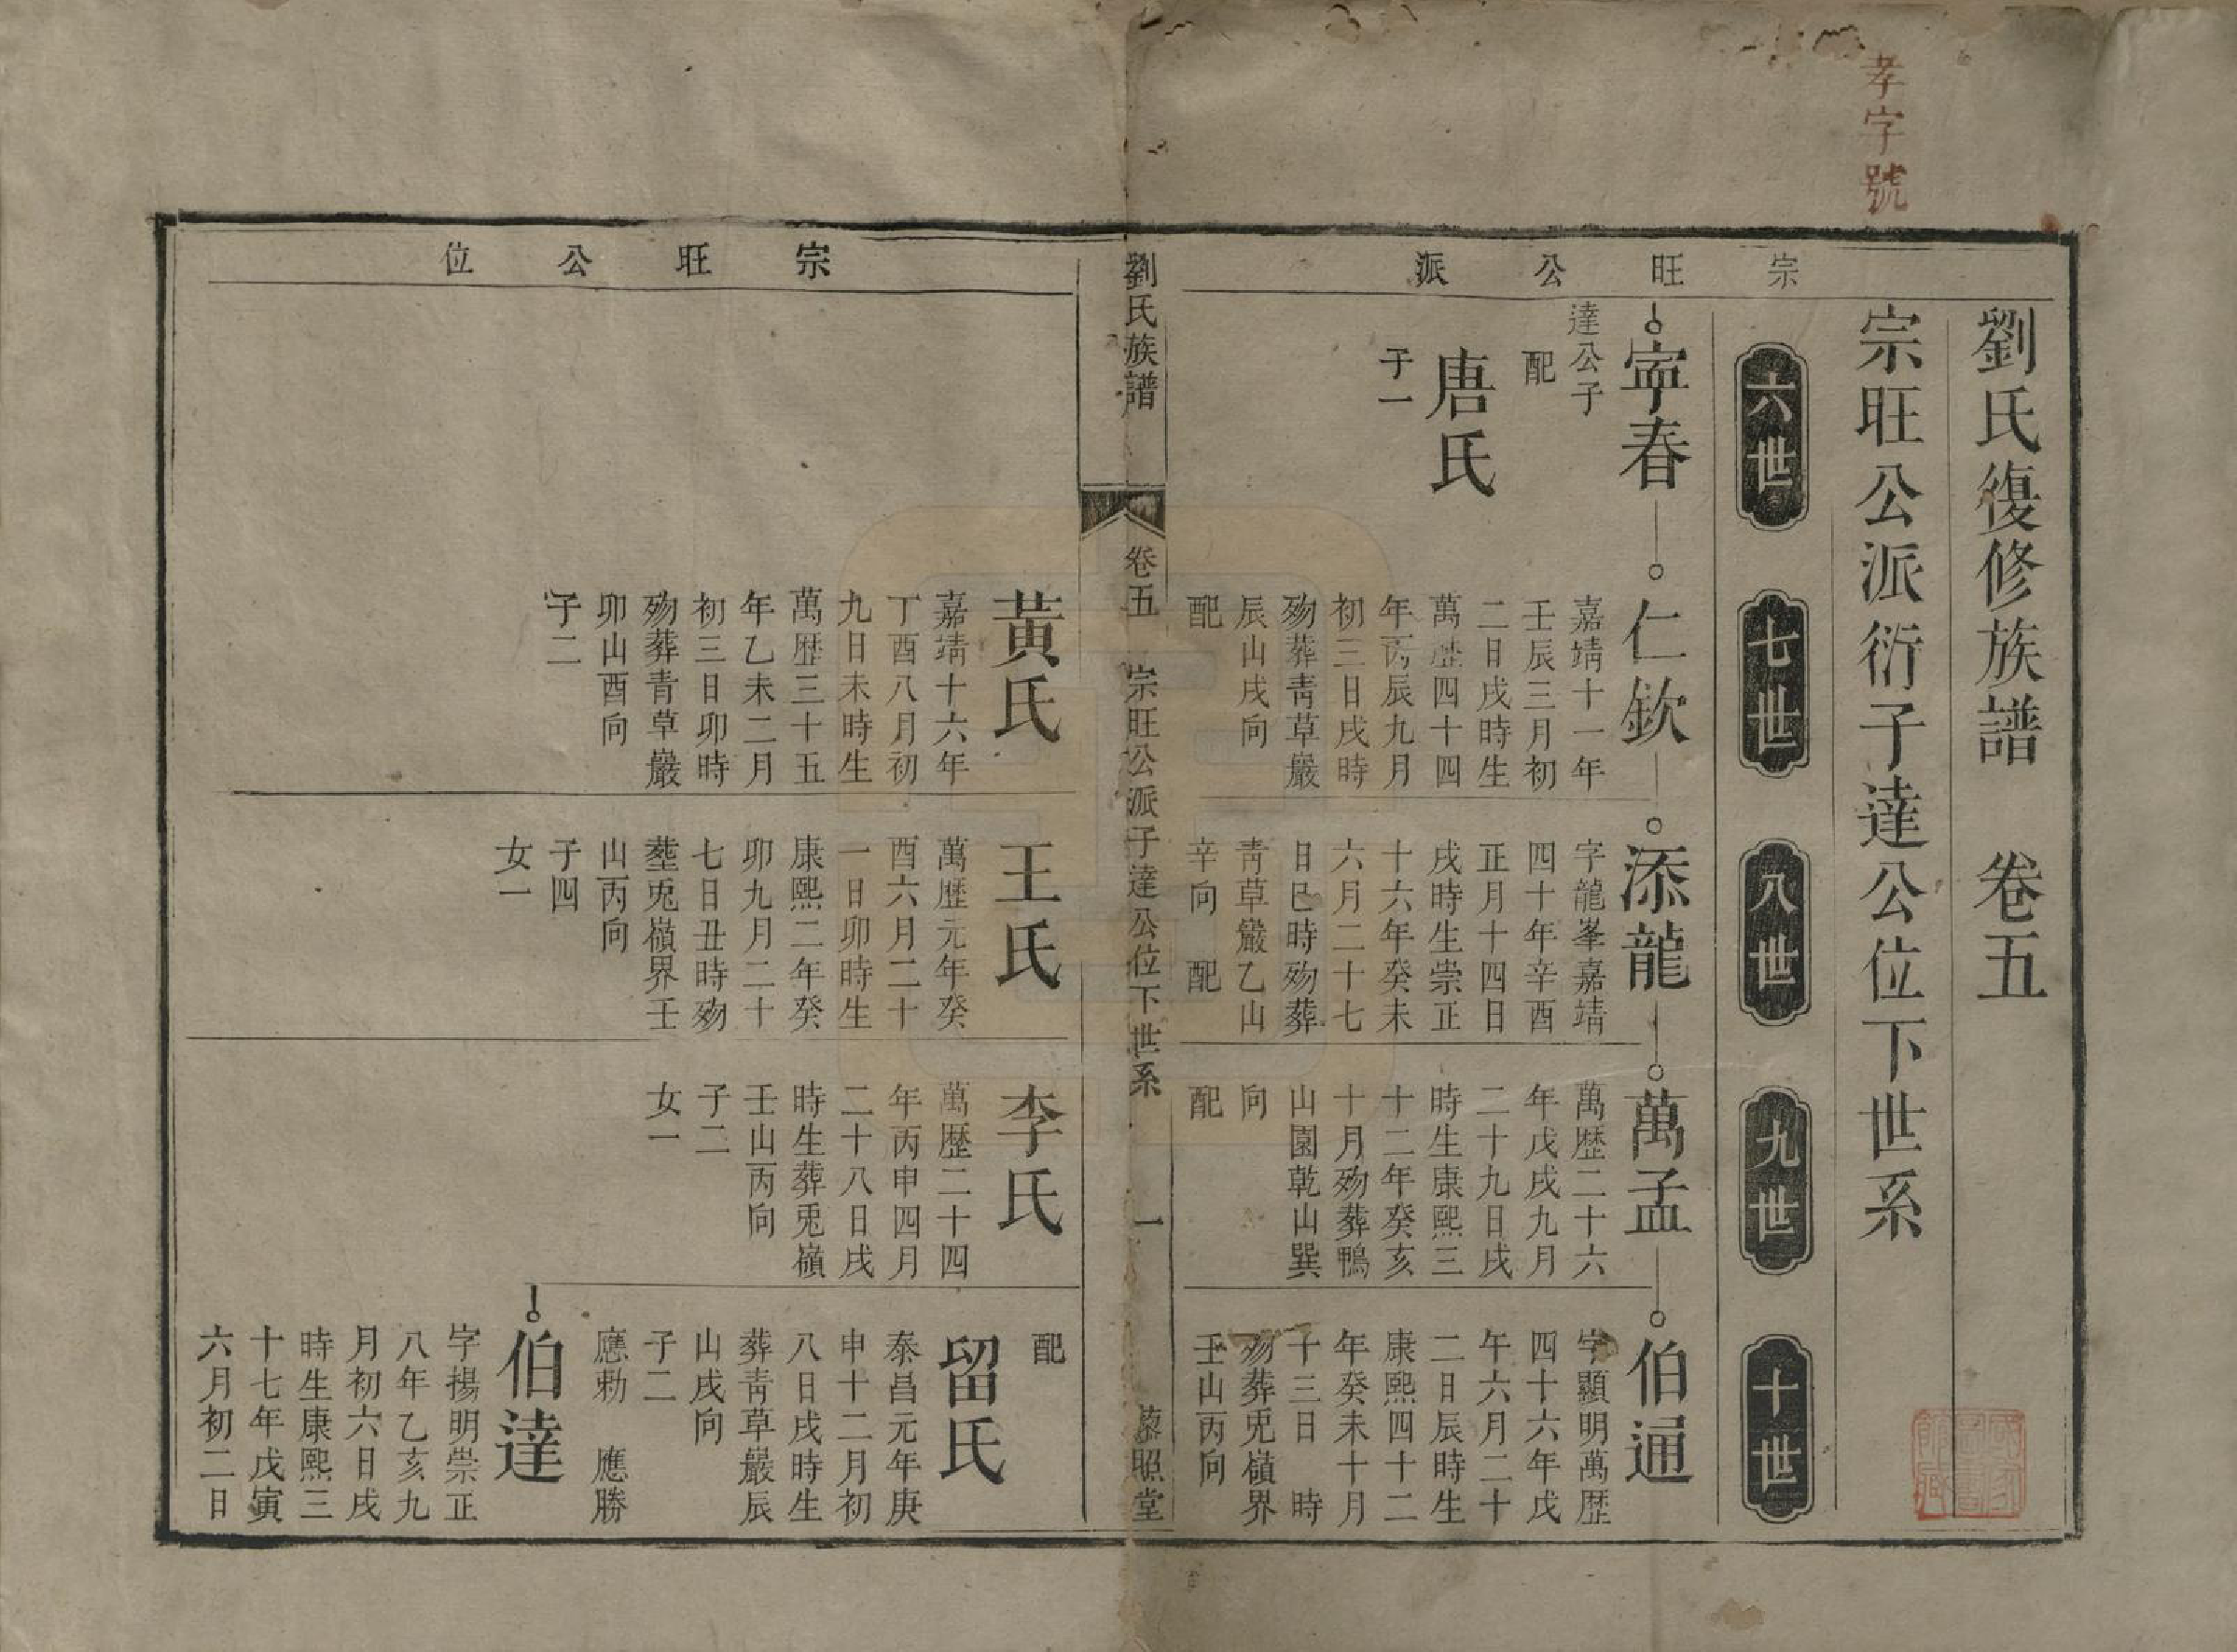 孝字號
劉氏復修族譜　卷五
宗旺公派衍子達公位下世系
宗旺公派
六世
七世
八世
九世
十世
寍春
達公子
配
唐氏
子一
仁欽
嘉靖十一年
壬辰三月初
二日戌時生
萬歷四十四
年丙辰九月
初三日戌時
殁葬靑草巖
辰山戌向
配
添龍
字龍峯嘉靖
四十年辛酉
正月十四日
戌時生崇正
十六年癸未
六月二十七
日巳時殁葬
靑草巖乙山
辛向　配
萬孟
萬歷二十六
年戊戌九月
二十九日戌
時生康熙三
十二年癸亥
十月殁葬鴨
山園乾山巽
向
配
伯通
字顯明萬歷
四十六年戊
午六月二十
二日辰時生
康熙四十二
年癸未十月
十三日　時
殁葬兎嶺界
壬山丙向
劉氏族譜
卷五　宗旺公派子達公位下世系
一
藜照堂
宗旺公位
黃氏
嘉靖十六年
丁酉八月初
九日未時生
萬歷三十五
年乙未二月
初三日卯時
殁葬青草巖
卯山酉向
子二
王氏
萬歷元年癸
酉六月二十
一日卯時生
康熙二年癸
卯九月二十
七日丑時殁
塟兎嶺界壬
山丙向
子四
女一
李氏
萬歷二十四
年丙申四月
二十八日戌
時生葬兎嶺
壬山丙向
子二
女一
配
留氏
泰昌元年庚
申十二月初
八日戌時生
葬靑草巖辰
山戌向
子二
應勅　應勝
伯達
字揚明崇正
八年乙亥九
月初六日戌
時生康熙三
十七年戊寅
六月初二日